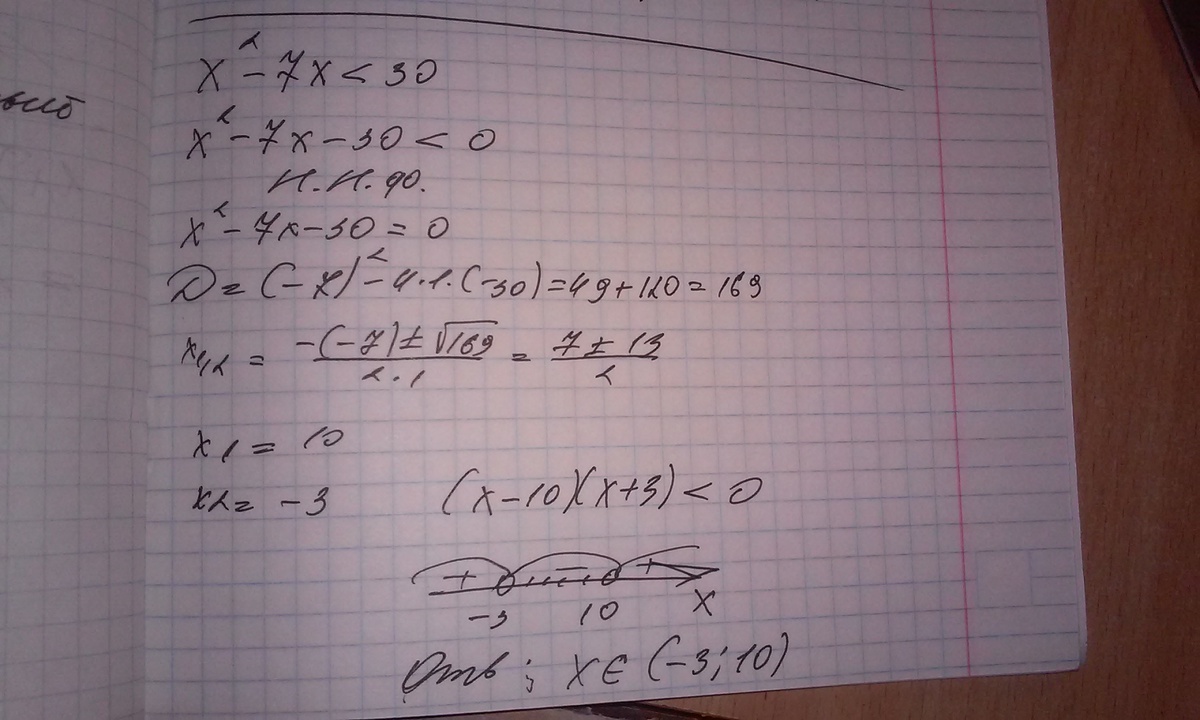 x² - 7x < 30
x² - 7x - 30 < 0
Н.Н.ф.
x² - 7x - 30 = 0
D = (-7)² - 4·1·(-30) = 49 + 120 = 169
x₁,₂ = (-(-7) ± √169) / (2·1) = (7 ± 13) / 2
x₁ = 10
x₂ = -3 (x-10)(x+3) < 0
+ - +
-3 10 X
Отв ; X ∈ (-3; 10)